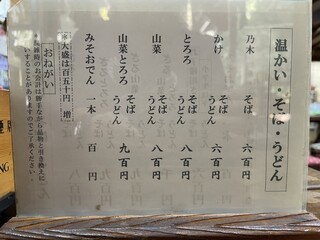 温かい・そば・うどん
乃木 そば 六百円
かけ そば 六百円
うどん
とろろ そば 八百円
うどん
山菜 そば 八百円
うどん
山菜とろろ そば 九百円
うどん
みそおでん 一本 百円
※大盛は百五十円 増
おねがい
いすることがありますのでご了承ください。